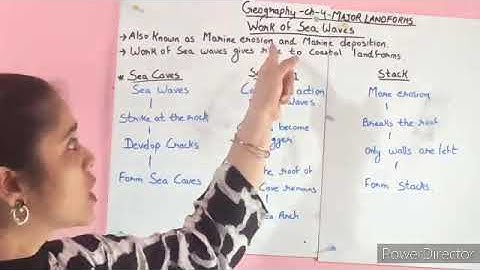 Geography -Ch-4- MAJOR LANDFORMS
Work of Sea Waves
→ Also Known as Marine erosion and Marine deposition.
→ Work of Sea waves gives to Coastal landforms
* Sea Caves
Sea Waves
Strike at the rock
Develop Cracks
Form Sea Caves
action
waves
become
roof of
Cave remains
Arch
Stack
More erosion
Breaks the roof
Only walls are left
Form Stacks.
PowerDirector